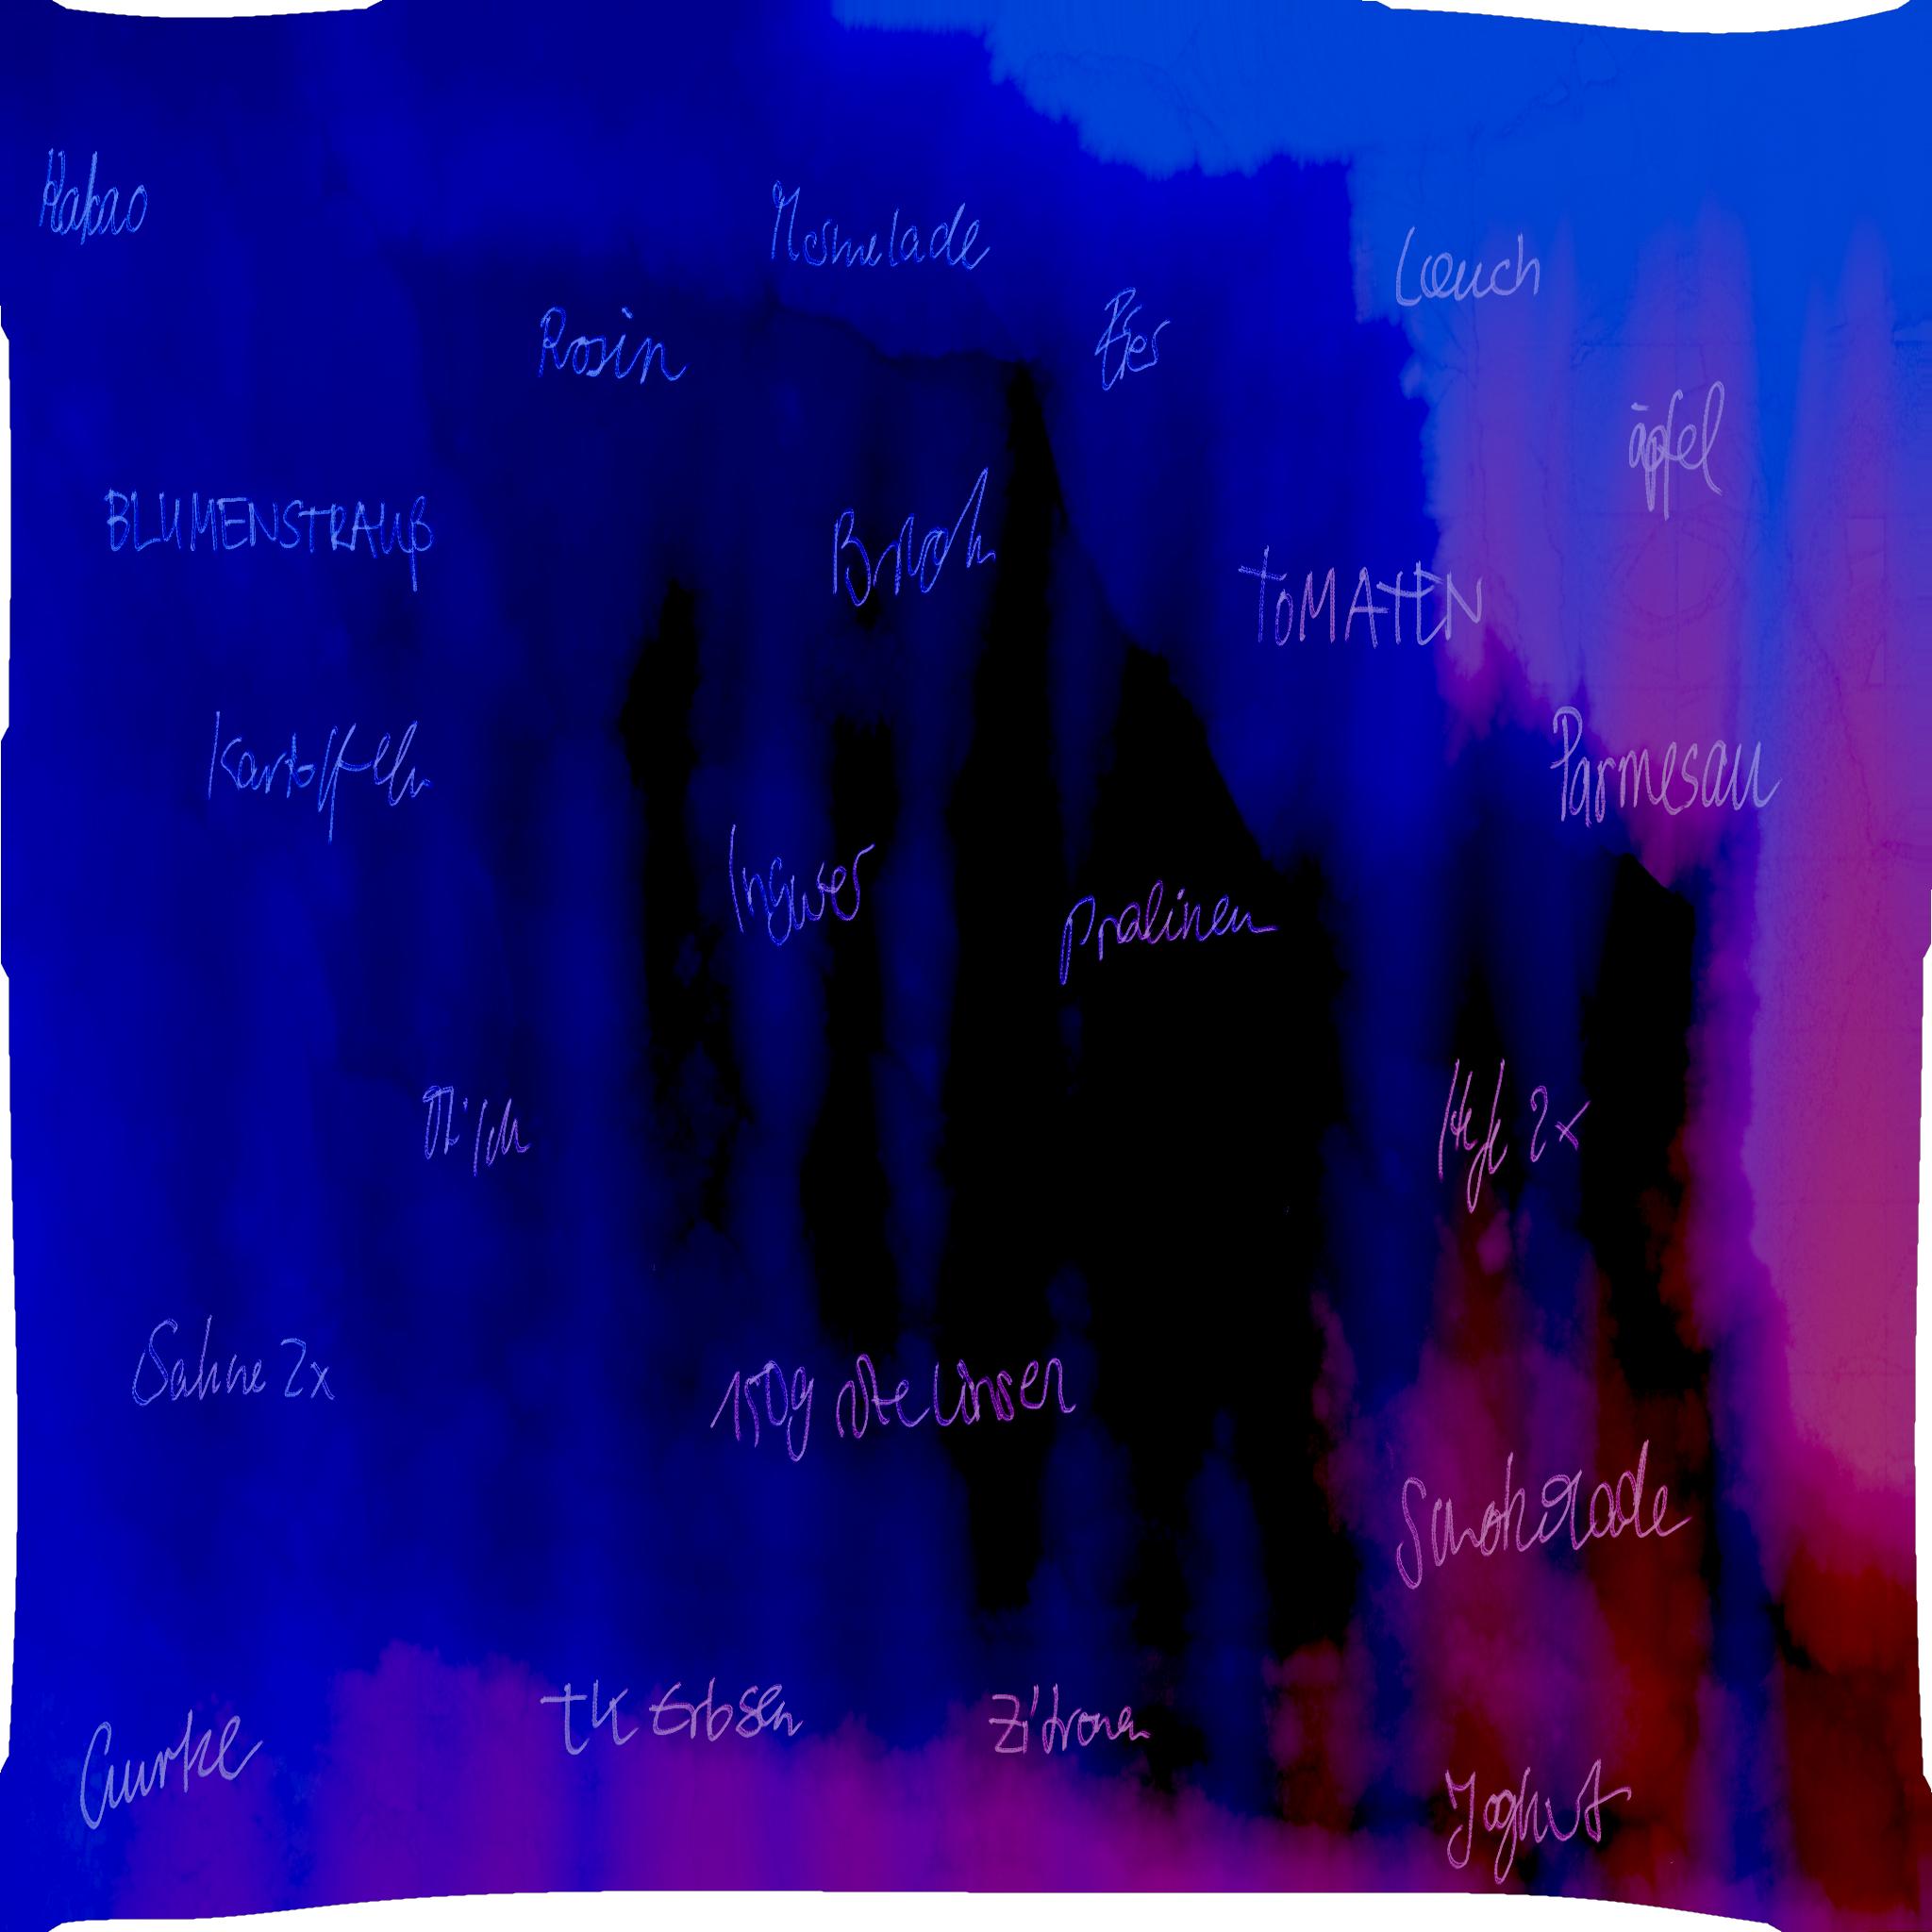 Kakao
Marmelade
Lauch
Rosin
Eier
äpfel
BLUMENSTRAUß
TOMATEN
Kartoffeln
Parmesan
Ingwer
Pralinen
Milch
Hefe 2x
Sahne 2x
150g rote Linsen
Schokolade
TK Erbsen
Zitronen
Gurke
Joghurt